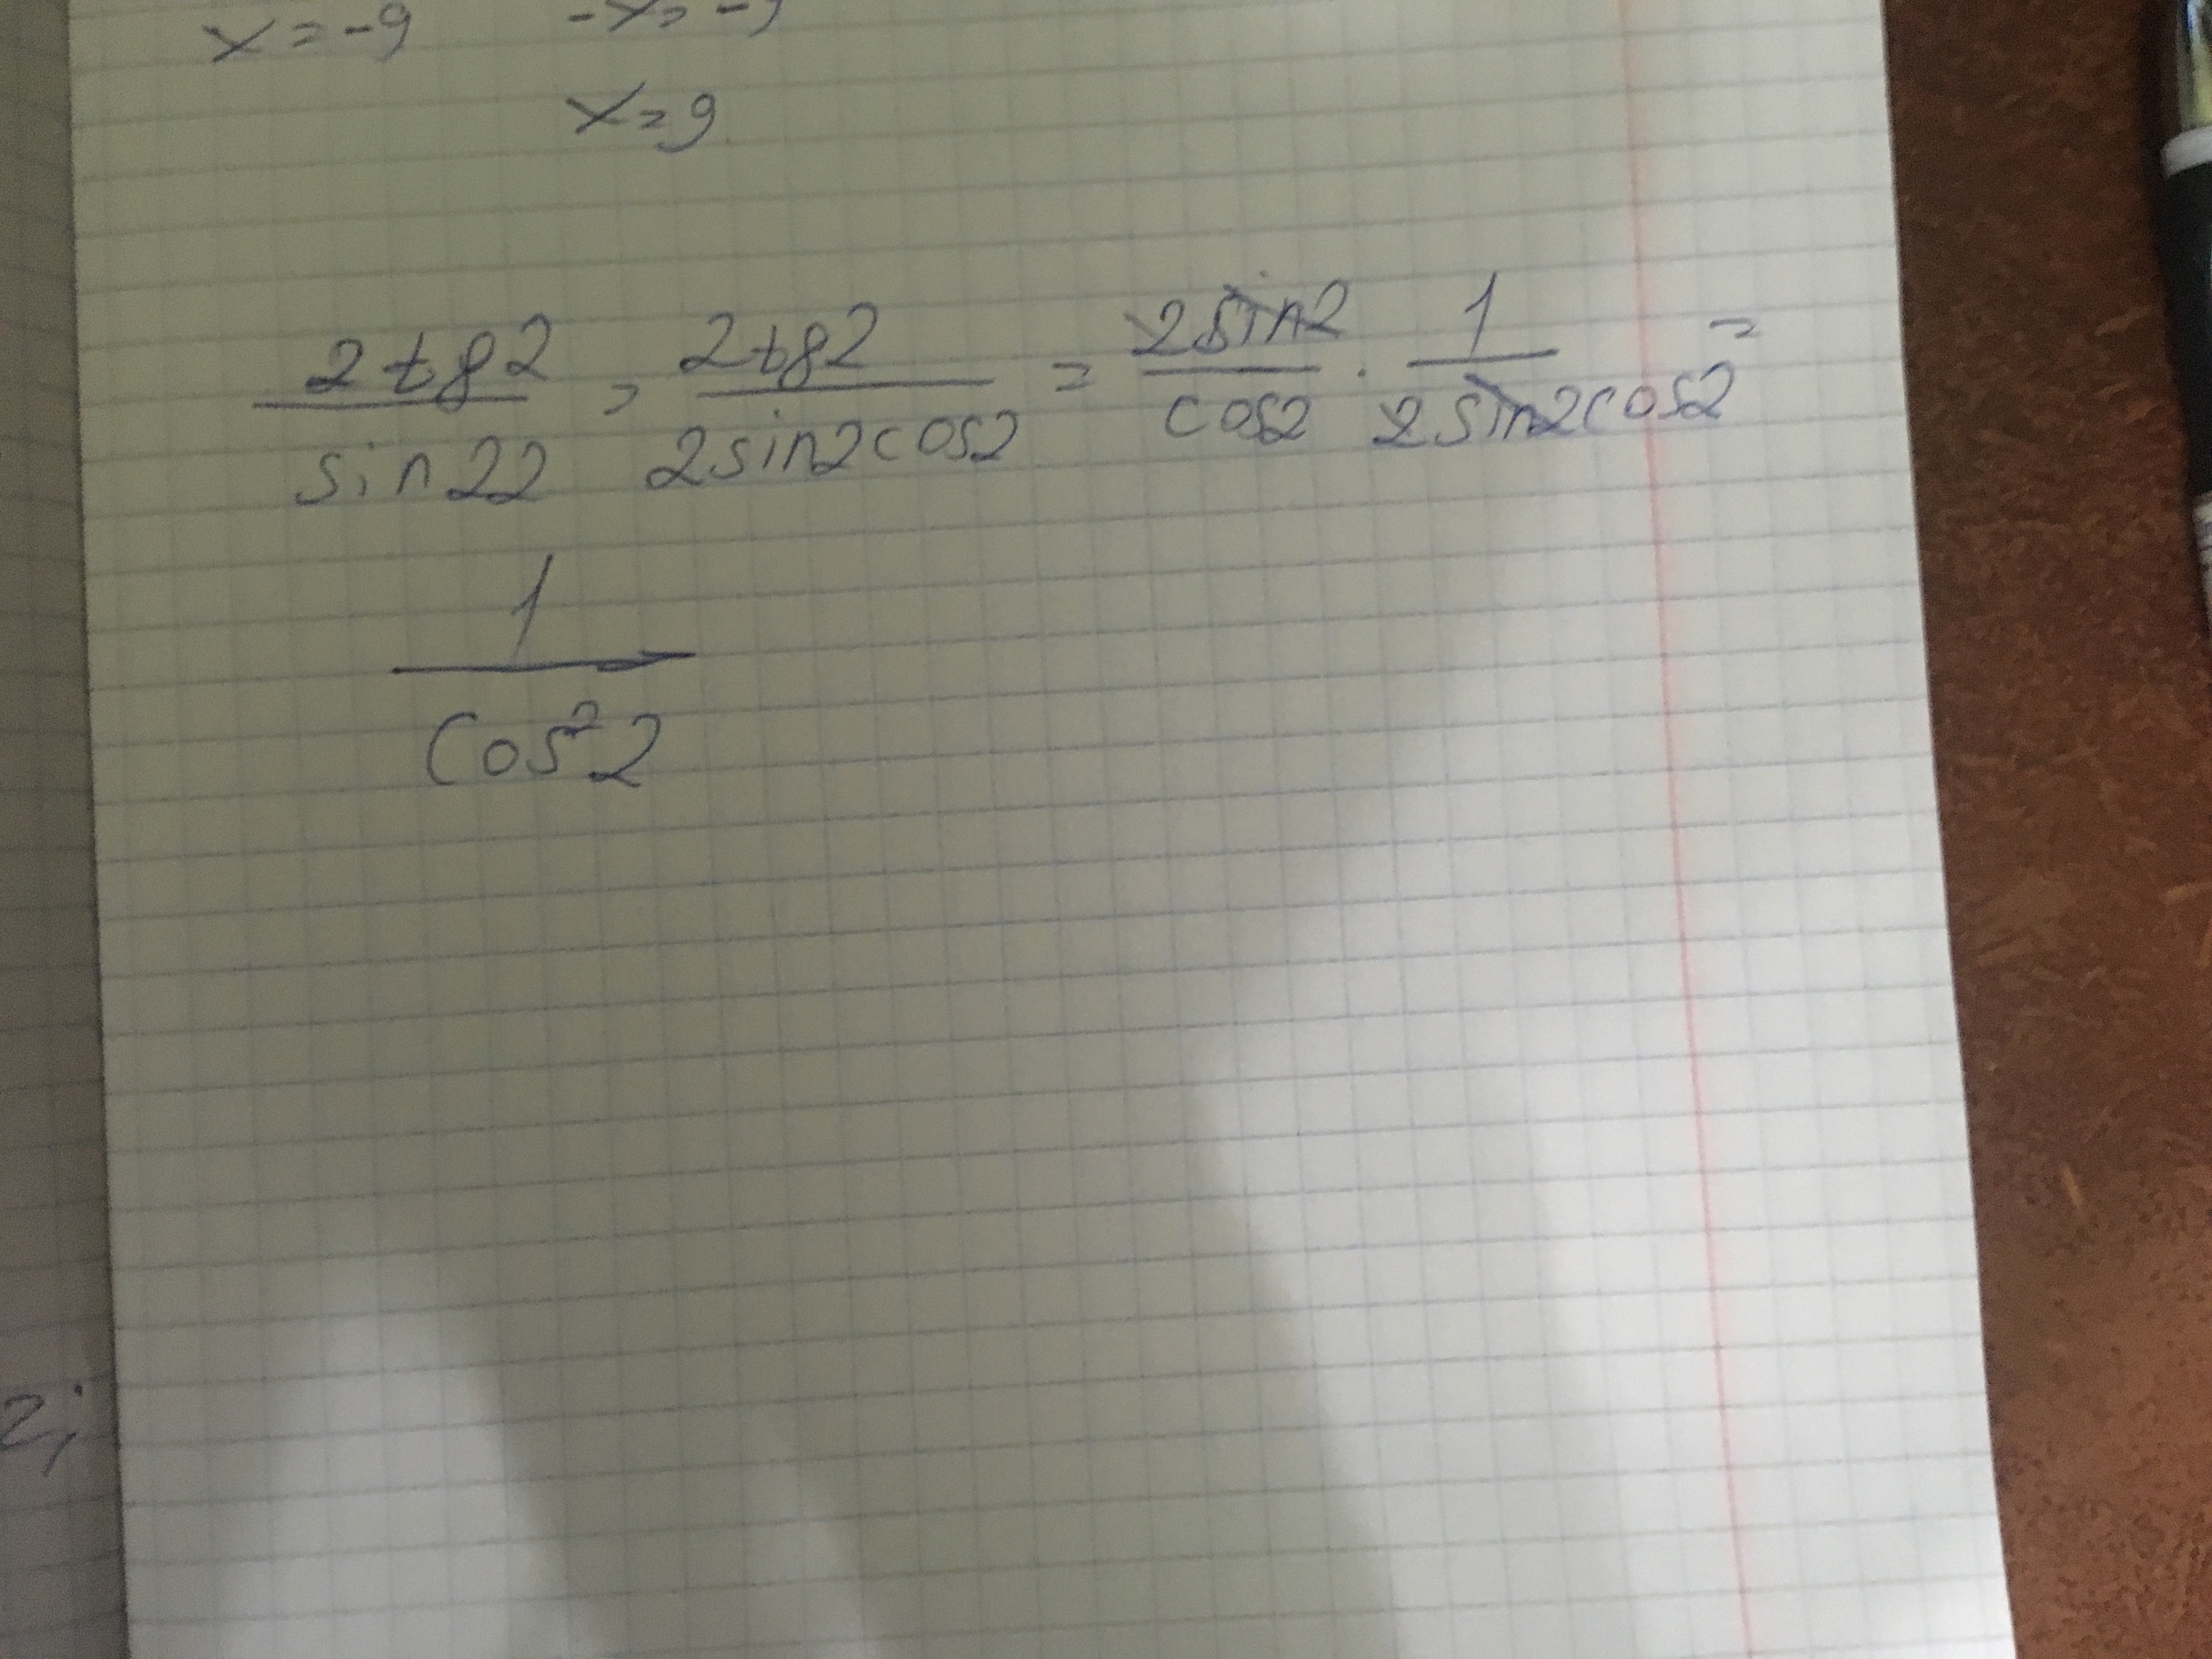 x = -9 -x = -9
x = 9
2tg2/sin22 = 2tg2/2sin2cos2 = 2sin2/cos2 · 1/2sin2cos2 =
1/cos²2
2;